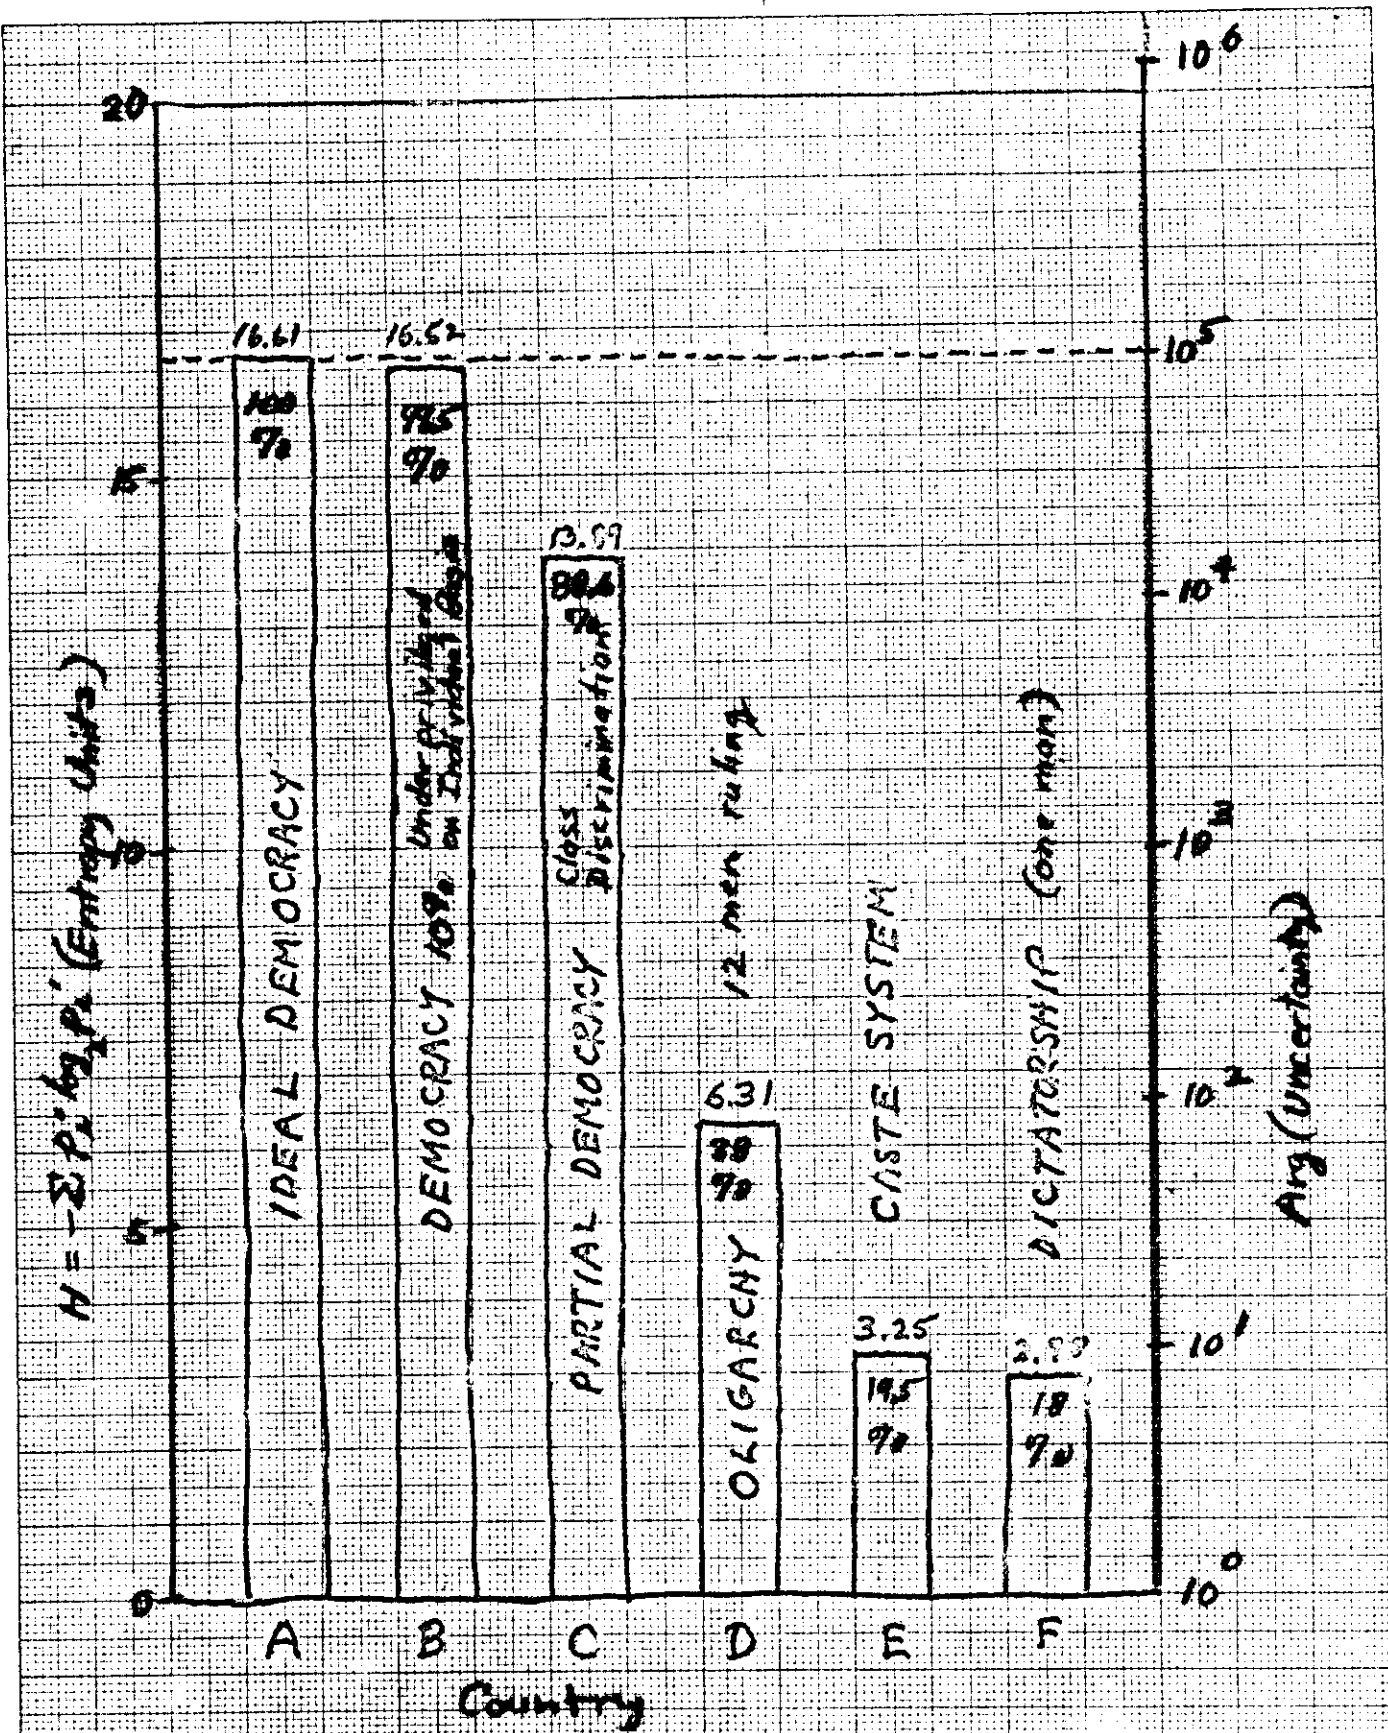 H = -Σ Pi' log2 Pi' (Entropy Units)
20
15
10
5
0
10^6
10^5
10^4
10^3
10^2
10^1
10^0
Arg (Uncertainty)
16.61
100
%
IDEAL DEMOCRACY
16.52
99.5
%
DEMOCRACY 10% Underprivileged
on Individual Basis
%
PARTIAL DEMOCRACY Class
Discrimination
6.31
38
%
OLIGARCHY
12 men ruling
3.25
19.5
%
CASTE SYSTEM
18
%
DICTATORSHIP (one man)
A
B
C
D
E
F
Country